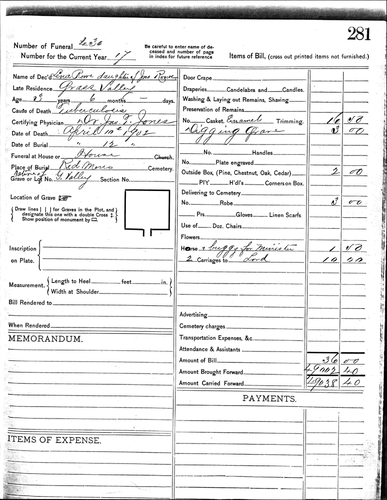 281
Number of Funeral 230
Number for the Current Year 17
Be carefully to enter name of deceased and number of page in index for future reference
Items of Bill, (cross out printed items not furnished.)
Name of Dec'd daughter of Jno
Late Residence Grass Valley
Age years 6 months days.
Cause of Death Tuberculous
Certifying Physician Dr Jno T. Jones
Date of Death April 10th 1902
Date of Burial " 12 "
Funeral at House or House Church
Place of Burial Red Cemetery.
Grave or Lot No. G Valley Section No.
Location of Grave
Draw lines for Graves in the Plot, and designate this one with a double Cross ‡
Show position of monument by
Inscription on Plate.
Measurement, Length to Heel feet in.
Width at Shoulder
Bill Rendered to
When Rendered
MEMORANDUM.
ITEMS OF EXPENSE.
Door Crape
Draperies Candelabras and Candles.
Washing & Laying out Remains, Shaving
Preservation of Remains
No. Casket Enamels Trimming.
Digging Grave 3 00
No. Handles
Plate engraved
Outside Box, (Pine, Chestnut, Oak, Cedar) 2 00
PIY H'dl's Corners on Box.
Delivering to Cemetery
No. Robe 3 00
Prs. Gloves Linen Scarfs
Use of Doz. Chairs
Flowers
buggy for Minister
2 Carriages to
Advertising
Cemetery charges
Transportation Expenses, &c.
Attendance & Assistants
Amount of Bill 36 00
Amount Brought Forward 49002 40
Amount Carried Forward 49038 40
PAYMENTS.